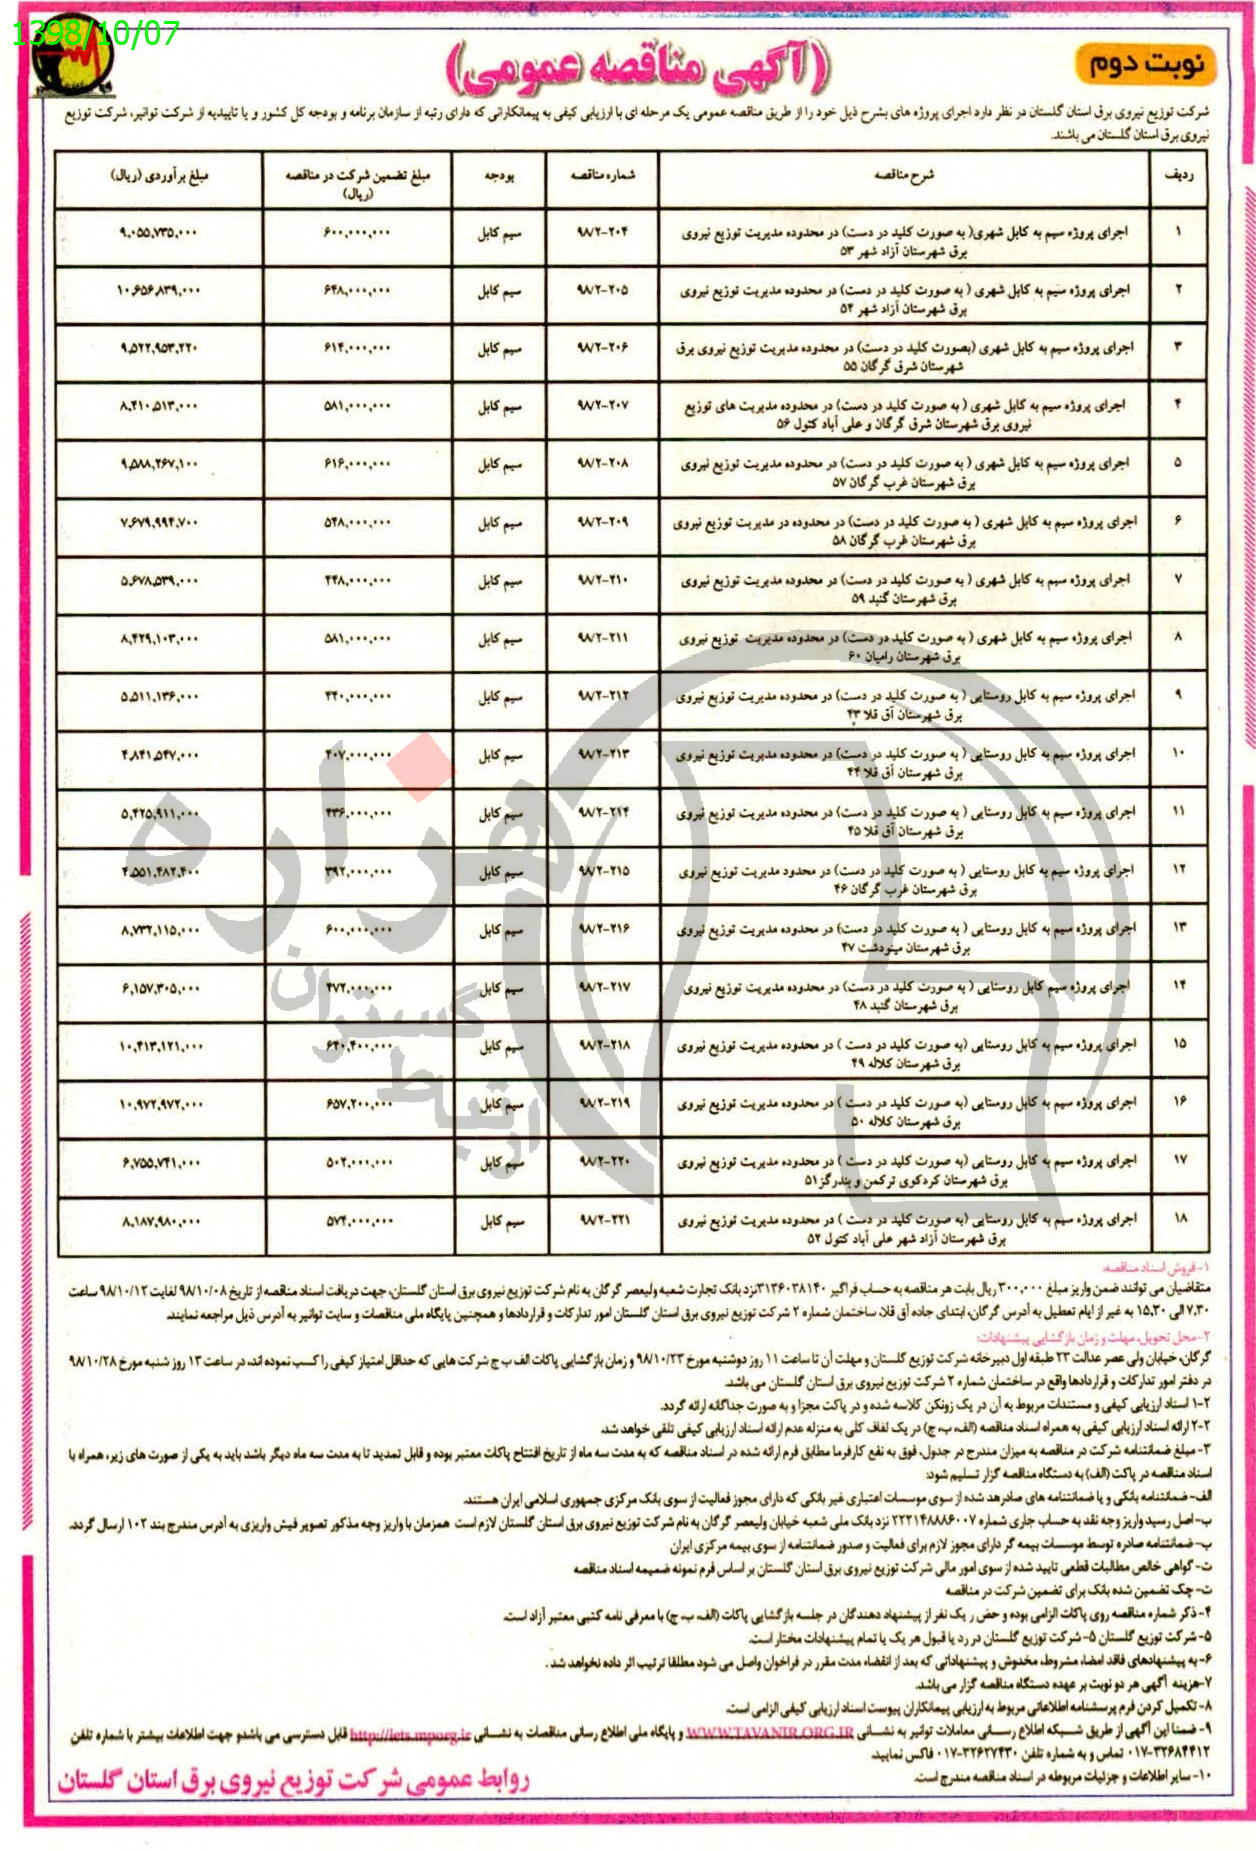 1398/10/07
نوبت دوم
(آگهی مناقصه عمومی)
شرکت توزیع نیروی برق استان گلستان در نظر دارد اجرای پروژه های بشرح ذیل خود را از طریق مناقصه عمومی یک مرحله ای با ارزیابی کیفی به پیمانکارانی که دارای رتبه از سازمان برنامه و بودجه کل کشور و یا تاییدیه از شرکت توانیر، شرکت توزیع
نیروی برق استان گلستان می باشند.
ردیف شرح مناقصه شماره مناقصه بودجه مبلغ تضمین شرکت در مناقصه (ریال) مبلغ برآوردی (ریال)
۱ اجرای پروژه سیم به کابل شهری( به صورت کلید در دست) در محدوده مدیریت توزیع نیروی ۹۸/۲-۲۰۴ سیم کابل ۶۰۰,۰۰۰,۰۰۰ ۹,۰۵۵,۷۳۵,۰۰۰
برق شهرستان آزاد شهر ۵۳
۲ اجرای پروژه سیم به کابل شهری ( به صورت کلید در دست) در محدوده مدیریت توزیع نیروی ۹۸/۲-۲۰۵ سیم کابل ۶۴۸,۰۰۰,۰۰۰ ۱۰,۶۵۶,۸۳۹,۰۰۰
برق شهرستان آزاد شهر ۵۴
۳ اجرای پروژه سیم به کابل شهری (بصورت کلید در دست) در محدوده مدیریت توزیع نیروی برق ۹۸/۲-۲۰۶ سیم کابل ۶۱۴,۰۰۰,۰۰۰ ۹,۵۲۲,۹۵۳,۲۲۰
شهرستان شرق گرگان ۵۵
۴ اجرای پروژه سیم به کابل شهری ( به صورت کلید در دست) در محدوده مدیریت های توزیع ۹۸/۲-۲۰۷ سیم کابل ۵۸۱,۰۰۰,۰۰۰ ۸,۴۱۰,۵۱۳,۰۰۰
نیروی برق شهرستان شرق گرگان و علی آباد کتول ۵۶
۵ اجرای پروژه سیم به کابل شهری ( به صورت کلید در دست) در محدوده مدیریت توزیع نیروی ۹۸/۲-۲۰۸ سیم کابل ۶۱۶,۰۰۰,۰۰۰ ۹,۵۸۸,۲۶۷,۱۰۰
برق شهرستان غرب گرگان ۵۷
۶ اجرای پروژه سیم به کابل شهری ( به صورت کلید در دست) در محدوده در مدیریت توزیع نیروی ۹۸/۲-۲۰۹ سیم کابل ۵۴۸,۰۰۰,۰۰۰ ۷,۶۷۹,۹۹۴,۷۰۰
برق شهرستان غرب گرگان ۵۸
۷ اجرای پروژه سیم به کابل شهری ( به صورت کلید در دست) در محدوده مدیریت توزیع نیروی ۹۸/۲-۲۱۰ سیم کابل ۴۴۸,۰۰۰,۰۰۰ ۵,۶۷۸,۵۳۹,۰۰۰
برق شهرستان گنبد ۵۹
۸ اجرای پروژه سیم به کابل شهری ( به صورت کلید در دست) در محدوده مدیریت توزیع نیروی ۹۸/۲-۲۱۱ سیم کابل ۵۸۱,۰۰۰,۰۰۰ ۸,۴۲۹,۱۰۳,۰۰۰
برق شهرستان رامیان ۶۰
۹ اجرای پروژه سیم به کابل روستایی ( به صورت کلید در دست) در محدوده مدیریت توزیع نیروی ۹۸/۲-۲۱۲ سیم کابل ۴۴۰,۰۰۰,۰۰۰ ۵,۵۱۱,۱۳۶,۰۰۰
برق شهرستان آق قلا ۴۳
۱۰ اجرای پروژه سیم به کابل روستایی ( به صورت کلید در دست) در محدوده مدیریت توزیع نیروی ۹۸/۲-۲۱۳ سیم کابل ۴۰۷,۰۰۰,۰۰۰ ۴,۸۴۱,۵۴۷,۰۰۰
برق شهرستان آق قلا ۴۴
۱۱ اجرای پروژه سیم به کابل روستایی ( به صورت کلید در دست) در محدوده مدیریت توزیع نیروی ۹۸/۲-۲۱۴ سیم کابل ۴۳۶,۰۰۰,۰۰۰ ۵,۴۲۵,۹۱۱,۰۰۰
برق شهرستان آق قلا ۴۵
۱۲ اجرای پروژه سیم به کابل روستایی ( به صورت کلید در دست) در محدود مدیریت توزیع نیروی ۹۸/۲-۲۱۵ سیم کابل ۳۹۲,۰۰۰,۰۰۰ ۴,۵۵۱,۴۸۲,۴۰۰
برق شهرستان غرب گرگان ۴۶
۱۳ اجرای پروژه سیم به کابل روستایی ( به صورت کلید در دست) در محدوده مدیریت توزیع نیروی ۹۸/۲-۲۱۶ سیم کابل ۶۰۰,۰۰۰,۰۰۰ ۸,۷۳۲,۱۱۵,۰۰۰
برق شهرستان مینودشت ۴۷
۱۴ اجرای پروژه سیم کابل روستایی ( به صورت کلید در دست) در محدوده مدیریت توزیع نیروی ۹۸/۲-۲۱۷ سیم کابل ۴۷۲,۰۰۰,۰۰۰ ۶,۱۵۷,۳۰۵,۰۰۰
برق شهرستان گنبد ۴۸
۱۵ اجرای پروژه سیم به کابل روستایی (به صورت کلید در دست ) در محدوده مدیریت توزیع نیروی ۹۸/۲-۲۱۸ سیم کابل ۶۴۰,۴۰۰,۰۰۰ ۱۰,۴۱۳,۱۲۱,۰۰۰
برق شهرستان کلاله ۴۹
۱۶ اجرای پروژه سیم به کابل روستایی (به صورت کلید در دست ) در محدوده مدیریت توزیع نیروی ۹۸/۲-۲۱۹ سیم کابل ۶۵۷,۲۰۰,۰۰۰ ۱۰,۹۷۲,۹۷۲,۰۰۰
برق شهرستان کلاله ۵۰
۱۷ اجرای پروژه سیم به کابل روستایی (به صورت کلید در دست ) در محدوده مدیریت توزیع نیروی ۹۸/۲-۲۲۰ سیم کابل ۵۰۲,۰۰۰,۰۰۰ ۶,۷۵۵,۷۴۱,۰۰۰
برق شهرستان کردکوی ترکمن و بندرگز ۵۱
۱۸ اجرای پروژه سیم به کابل روستایی (به صورت کلید در دست ) در محدوده مدیریت توزیع نیروی ۹۸/۲-۲۲۱ سیم کابل ۵۷۴,۰۰۰,۰۰۰ ۸,۱۸۷,۹۸۰,۰۰۰
برق شهرستان آزاد شهر علی آباد کتول ۵۲
هزاره
گستران
ارتباط
۱-فروش اسناد مناقصه:
متقاضیان می توانند ضمن واریز مبلغ ۳۰۰,۰۰۰ ریال بابت هر مناقصه به حساب فراگیر ۳۱۳۶۰۳۸۱۴۰نزد بانک تجارت شعبه ولیعصر گرگان به نام شرکت توزیع نیروی برق استان گلستان، جهت دریافت اسناد مناقصه از تاریخ ۹۸/۱۰/۰۸ لغایت ۹۸/۱۰/۱۲ ساعت
۷,۳۰ الی ۱۵,۳۰ به غیر از ایام تعطیل به آدرس گرگان، ابتدای جاده آق قلا، ساختمان شماره ۲ شرکت توزیع نیروی برق استان گلستان امور تدارکات و قراردادها و همچنین پایگاه ملی مناقصات و سایت توانیر به آدرس ذیل مراجعه نمایند.
۲-محل تحویل، مهلت و زمان بازگشایی پیشنهادات:
گرگان، خیابان ولی عصر عدالت ۲۳ طبقه اول دبیرخانه شرکت توزیع گلستان و مهلت آن تا ساعت ۱۱ روز دوشنبه مورخ ۹۸/۱۰/۲۳ و زمان بازگشایی پاکات الف ب ج شرکت هایی که حداقل امتیاز کیفی را کسب نموده اند، در ساعت ۱۳ روز شنبه مورخ ۹۸/۱۰/۲۸
در دفتر امور تدارکات و قراردادها واقع در ساختمان شماره ۲ شرکت توزیع نیروی برق استان گلستان می باشد.
۱-۲ اسناد ارزیابی کیفی و مستندات مربوط به آن در یک زونکن کلاسه شده و در پاکت مجزا و به صورت جداگانه ارائه گردد.
۲-۲ ارائه اسناد ارزیابی کیفی به همراه اسناد مناقصه (الف، ب، ج) در یک لفاف کلی به منزله عدم ارائه اسناد ارزیابی کیفی تلقی خواهد شد.
۳- مبلغ ضمانتنامه شرکت در مناقصه به میزان مندرج در جدول، فوق به نفع کارفرما مطابق فرم ارائه شده در اسناد مناقصه که به مدت سه ماه از تاریخ افتتاح پاکات معتبر بوده و قابل تمدید تا به مدت سه ماه دیگر باشد باید به یکی از صورت های زیر، همراه با
اسناد مناقصه در پاکت (الف) به دستگاه مناقصه گزار تسلیم شود:
الف- ضمانتنامه بانکی و یا ضمانتنامه های صادرهد شده از سوی موسسات اعتباری غیر بانکی که دارای مجوز فعالیت از سوی بانک مرکزی جمهوری اسلامی ایران هستند.
ب- اصل رسید واریز وجه نقد به حساب جاری شماره ۲۲۲۱۴۸۸۸۶۰۰۷ نزد بانک ملی شعبه خیابان ولیعصر گرگان به نام شرکت توزیع نیروی برق استان گلستان لازم است همزمان با واریز وجه مذکور تصویر فیش واریزی به آدرس مندرج بند ۱۰۲ ارسال گردد.
پ- ضمانتنامه صادره توسط موسسات بیمه گر دارای مجوز لازم برای فعالیت و صدور ضمانتنامه از سوی بیمه مرکزی ایران
ت- گواهی خالص مطالبات قطعی تایید شده از سوی امور مالی شرکت توزیع نیروی برق استان گلستان بر اساس فرم نمونه ضمیمه اسناد مناقصه
ث- چک تضمین شده بانک برای تضمین شرکت در مناقصه
۴-ذکر شماره مناقصه روی پاکات الزامی بوده و حض ر یک نفر از پیشنهاد دهندگان در جلسه بازگشایی پاکات (الف، ب، ج) با معرفی نامه کتبی معتبر آزاد است.
۵- شرکت توزیع گلستان ۵-شرکت توزیع گلستان در رد یا قبول هر یک یا تمام پیشنهادات مختار است.
۶- به پیشنهادهای فاقد امضا، مشروط، مخدوش و پیشنهاداتی که بعد از انقضاء مدت مقرر در فراخوان واصل می شود مطلقا ترتیب اثر داده نخواهد شد .
۷-هزینه آگهی هر دو نوبت بر عهده دستگاه مناقصه گزار می باشد.
۸- تکمیل کردن فرم پرسشنامه اطلاعاتی مربوط به ارزیابی پیمانکاران پیوست اسناد ارزیابی کیفی الزامی است.
۹- ضمنا این آگهی از طریق شبکه اطلاع رسانی معاملات توانیر به نشانی WWW.TAVANIR.ORG.IR و پایگاه ملی اطلاع رسانی مناقصات به نشانی http://iets.mporg.ir قابل دسترسی می باشدو جهت اطلاعات بیشتر با شماره تلفن
۰۱۷-۳۲۶۸۴۴۱۲ تماس و به شماره تلفن ۰۱۷-۳۲۶۲۷۴۳۰ فاکس نمایید.
۱۰- سایر اطلاعات و جزئیات مربوطه در اسناد مناقصه مندرج است.
روابط عمومی شرکت توزیع نیروی برق استان گلستان